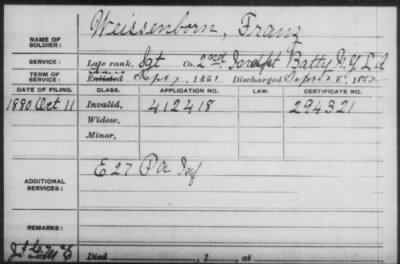 NAME OF SOLDIER: Weissenborn, Franz
SERVICE: Late rank, Sgt Co. 2nd Indpt Batty N.Y. L.A
TERM OF SERVICE: Enlisted Sept 7, 1861 Discharged Sept
DATE OF FILING. CLASS. APPLICATION NO. LAW. CERTIFICATE NO.
1880 Oct 11 Invalid, 412418 294321
Widow,
Minor,
ADDITIONAL SERVICES: E 27 Pa Inf
REMARKS:
Died , 1 , at